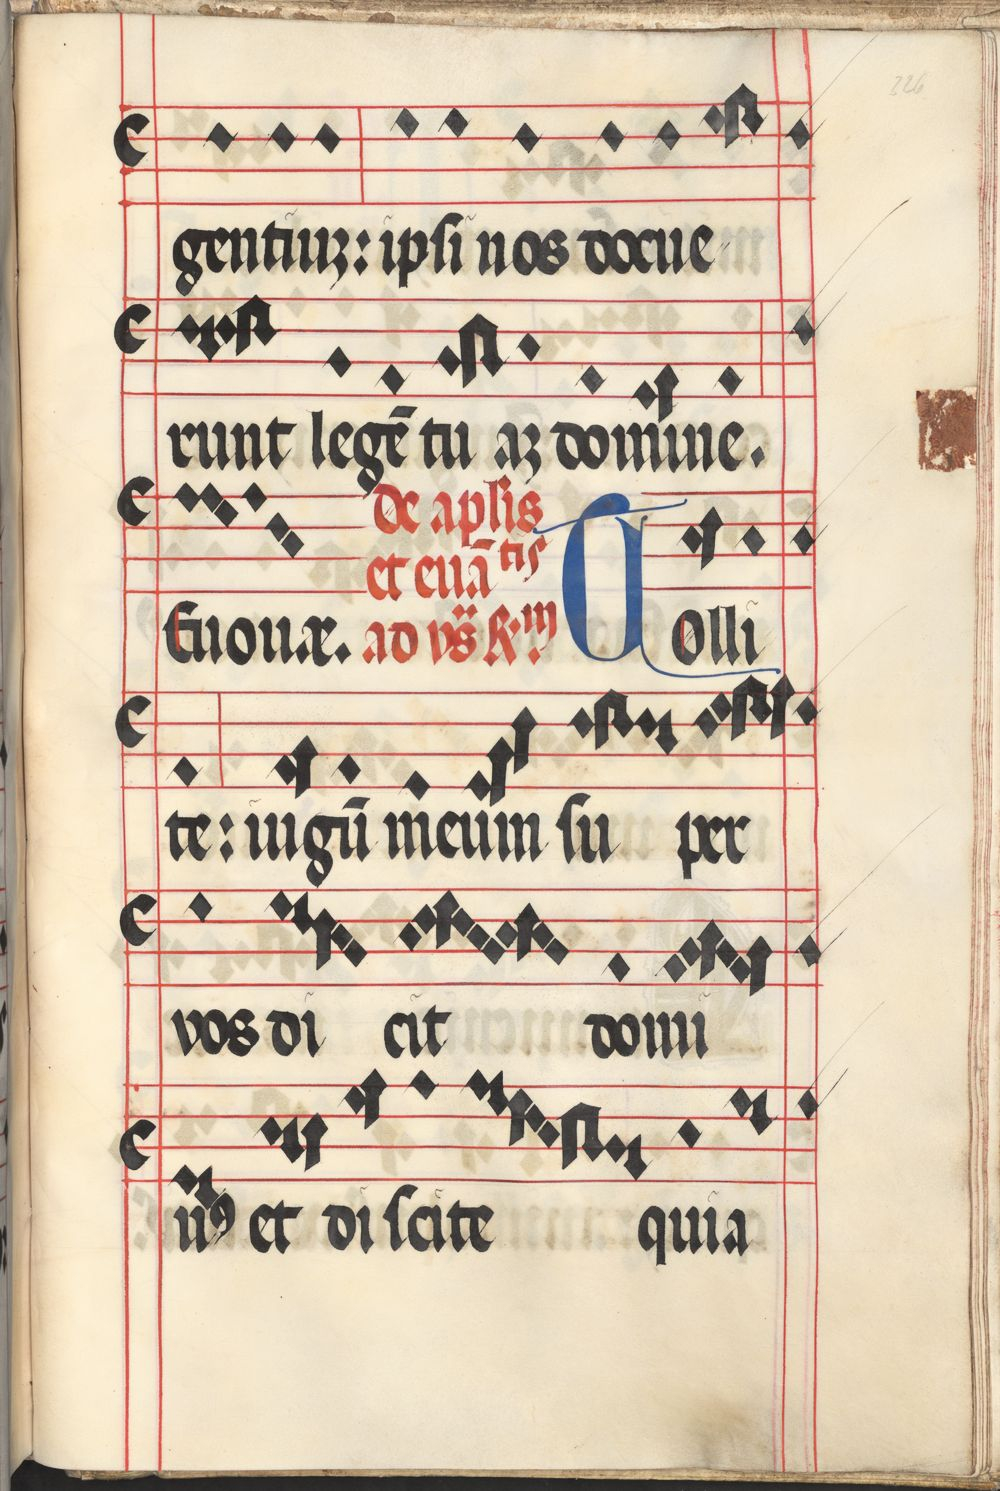 326
gentiuʒ: ipsi nos docue
runt legē tu aʒ domine.
de aplis
et euā tis
Euouae. ad vs̄ R. iij Tolli
te: iugū meum su per
vos di cit domi
nꝰ et di scite quia